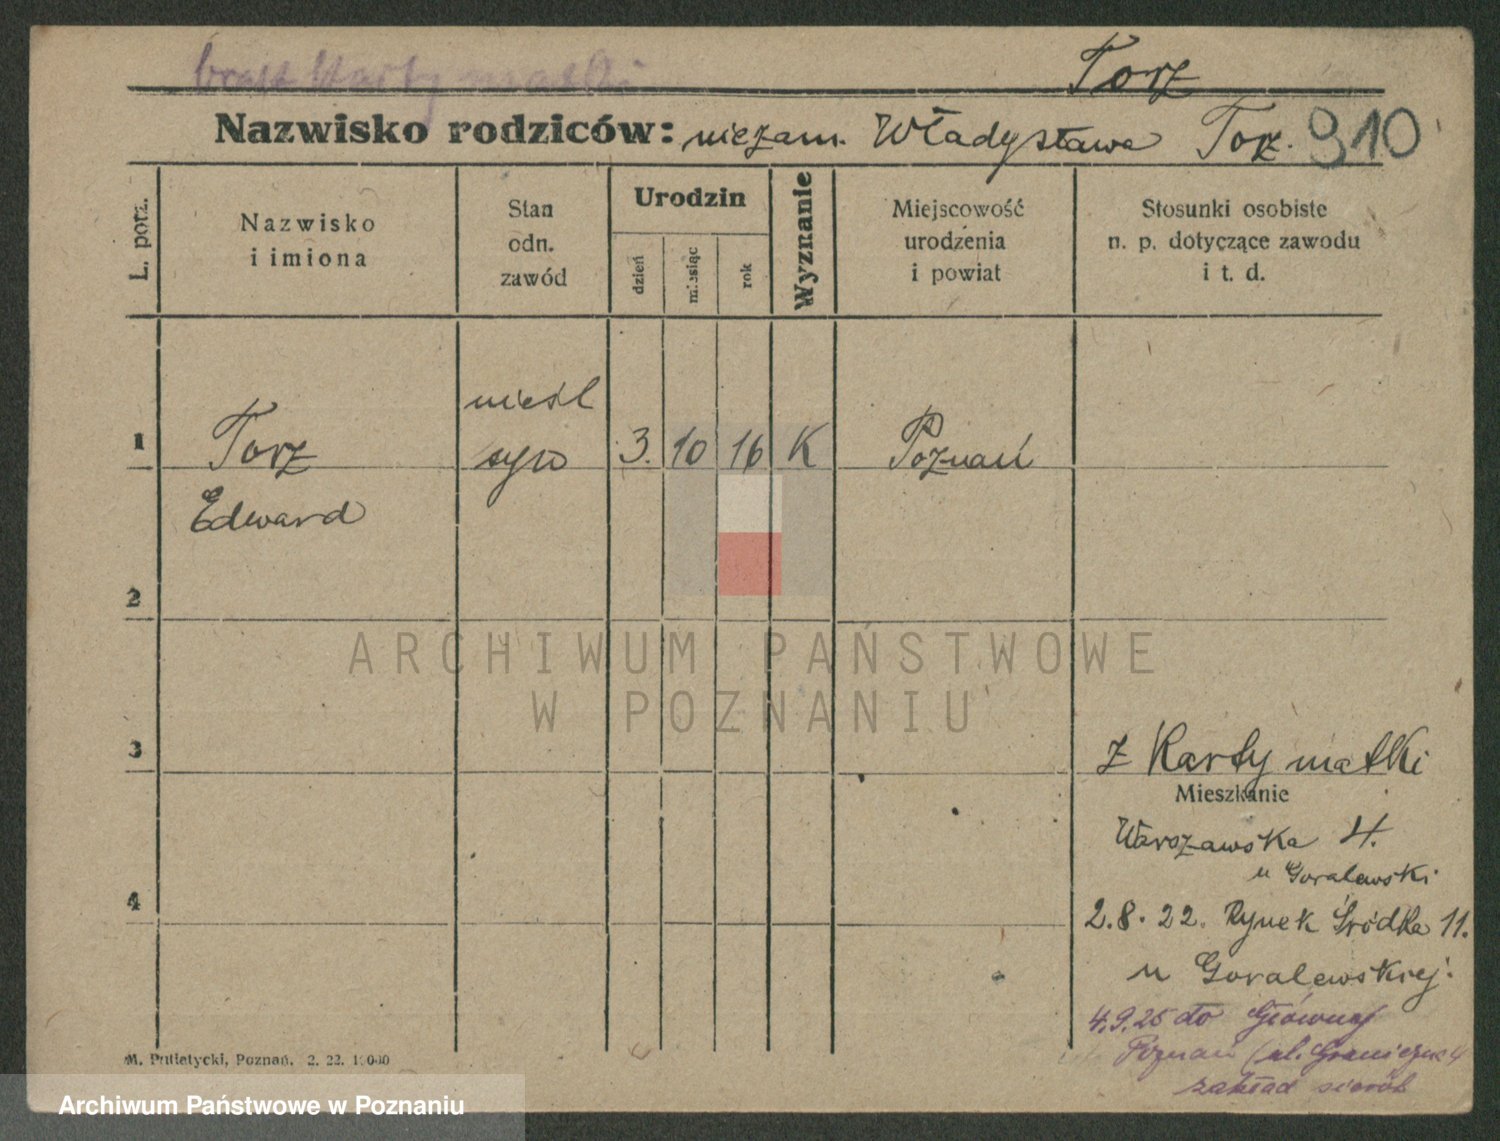 brak Karty matki
Torz
Nazwisko rodziców: niezam. Władysława Torz. 910
L. porz.
Nazwisko
i imiona
Stan
odn.
zawód
Urodzin
dzień
miesiąc
rok
Wyznanie
Miejscowość
urodzenia
i powiat
Stosunki osobiste
n. p. dotyczące zawodu
i t. d.
nieśl
1 Torz syn 3. 10 16 K Poznań
Edward
2
ARCHIWUM PAŃSTWOWE
W POZNANIU
3
z Karty matki
Mieszkanie
Warszawska 4.
u Goralewski
4
2.8.22. Rynek Śródka 11.
u Goralewskiej.
4.9.25 do Głównej
Poznań (ul. Graniczna 4
zakład sierót
M. Putiatycki, Poznań. 2. 22. 10000
Archiwum Państwowe w Poznaniu